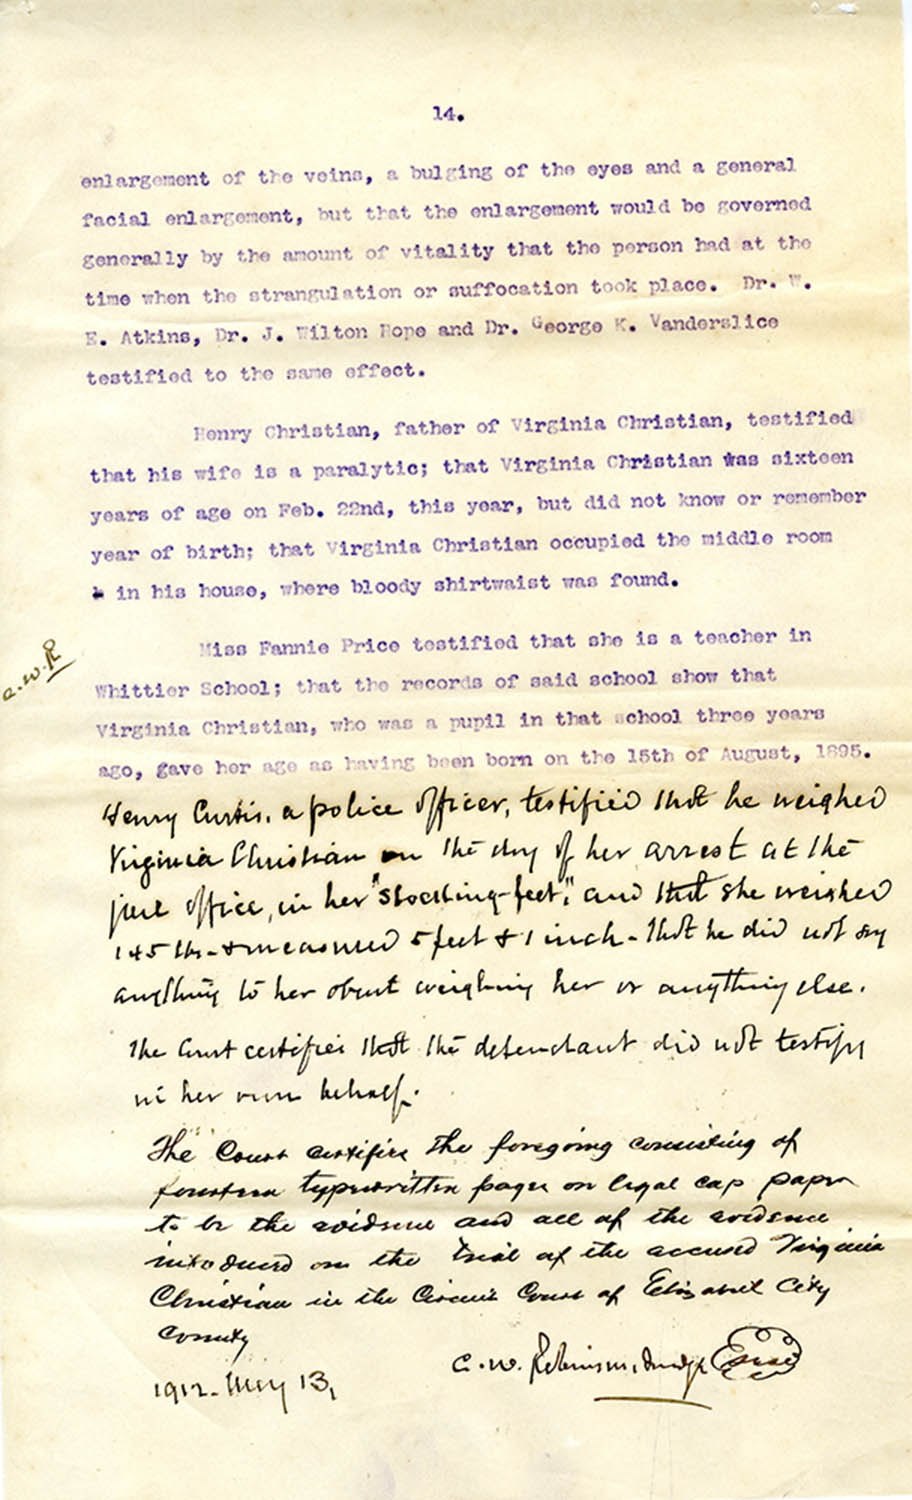 14.
enlargement of the veins, a bulging of the eyes and a general
facial enlargement, but that the enlargement would be governed
generally by the amount of vitality that the person had at the
time when the strangulation or suffocation took place. Dr. W.
E. Atkins, Dr. J. Wilton Hope and Dr. George K. Vanderslice
testified to the same effect.
Henry Christian, father of Virginia Christian, testified
that his wife is a paralytic; that Virginia Christian was sixteen
years of age on Feb. 22nd, this year, but did not know or remember
year of birth; that Virginia Christian occupied the middle room
in his house, where bloody shirtwaist was found.
Miss Fannie Price testified that she is a teacher in
C.W.R
Whittier School; that the records of said school show that
Virginia Christian, who was a pupil in that school three years
ago, gave her age as having been born on the 15th of August, 1895.
Henry Curtis, a police officer, testified that he weighed
Virginia Christian on the day of her arrest at the
jail office, in her "stocking-feet", and that she weighed
145 lbs. & measured 5 feet & 1 inch - that he did not say
anything to her about weighing her or anything else.
The Court certifies that the defendant did not testify
in her own behalf.
The Court certifies the foregoing consisting of
fourteen typewritten pages on legal cap paper
to be the evidence and all of the evidence
introduced on the trial of the accused Virginia
Christian in the Circuit Court of Elizabeth City
County
C. W. Robinson, Judge
1912. May 13,